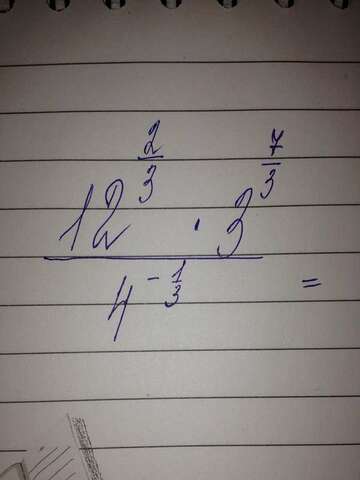 12^{2/3} · 3^{7/3}
4^{-1/3} =